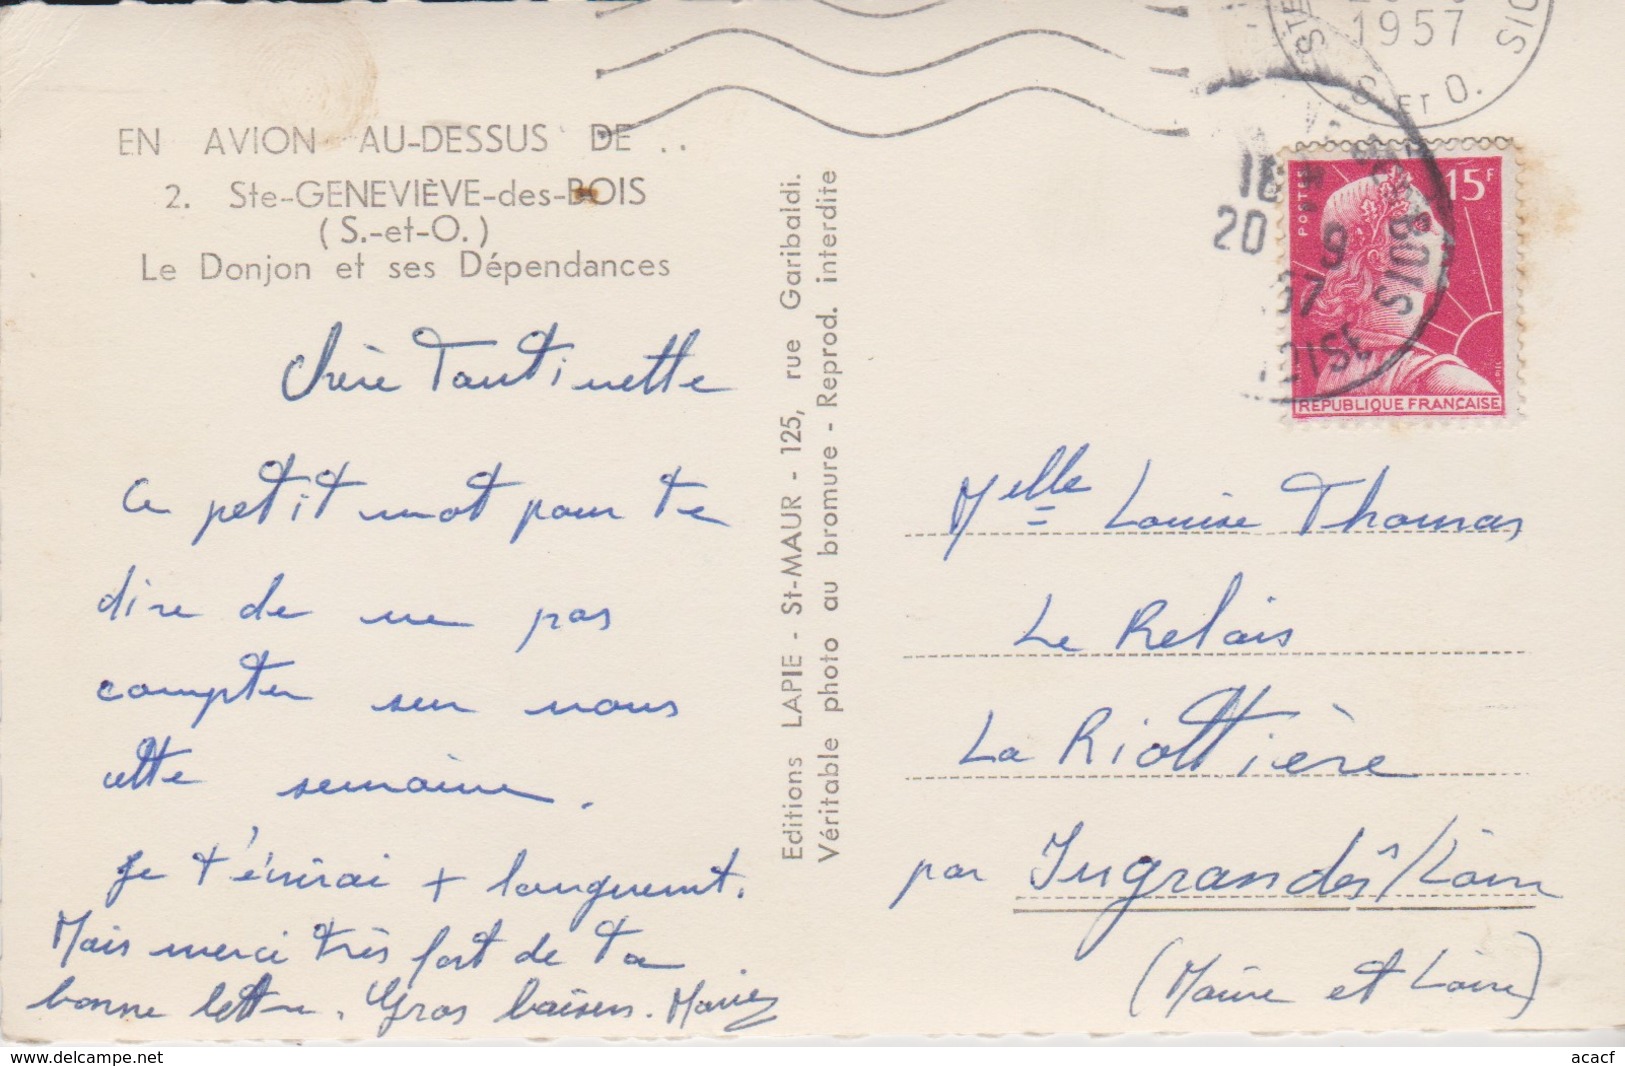 1957
S. ET O.
EN AVION AU-DESSUS DE . .
2. Ste-GENEVIÈVE-des-BOIS
(S.-et-O.)
Le Donjon et ses Dépendances
Chère Tantinette
Ce petit mot pour te
dire de ne pas
compter sur nous
cette semaine.
Je t'écrirai + longuemt.
Mais merci très fort de ta
bonne lettre. Gros baisers.
Editions LAPIE - St-MAUR - 125, rue Garibaldi.
Véritable photo au bromure - Reprod. interdite
20 9
BOIS
POSTES
15F
REPUBLIQUE FRANÇAISE
Melle Louise Thomas
Le Relais
La Riottière
par Ingrandes s/Loire
(Maine et Loire)
acacf